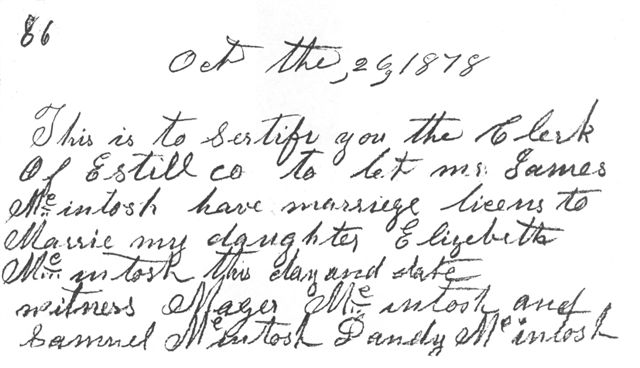 86
Oct the, 26, 1878
This is to Sertify you the Clerk
Of Estill co to let mr. James
McIntosh have marriege licens to
Marrie my daughter Elizebeth
McIntosh this day and date
witness Mager McIntosh and
Samuel McIntosh Dandy McIntosh